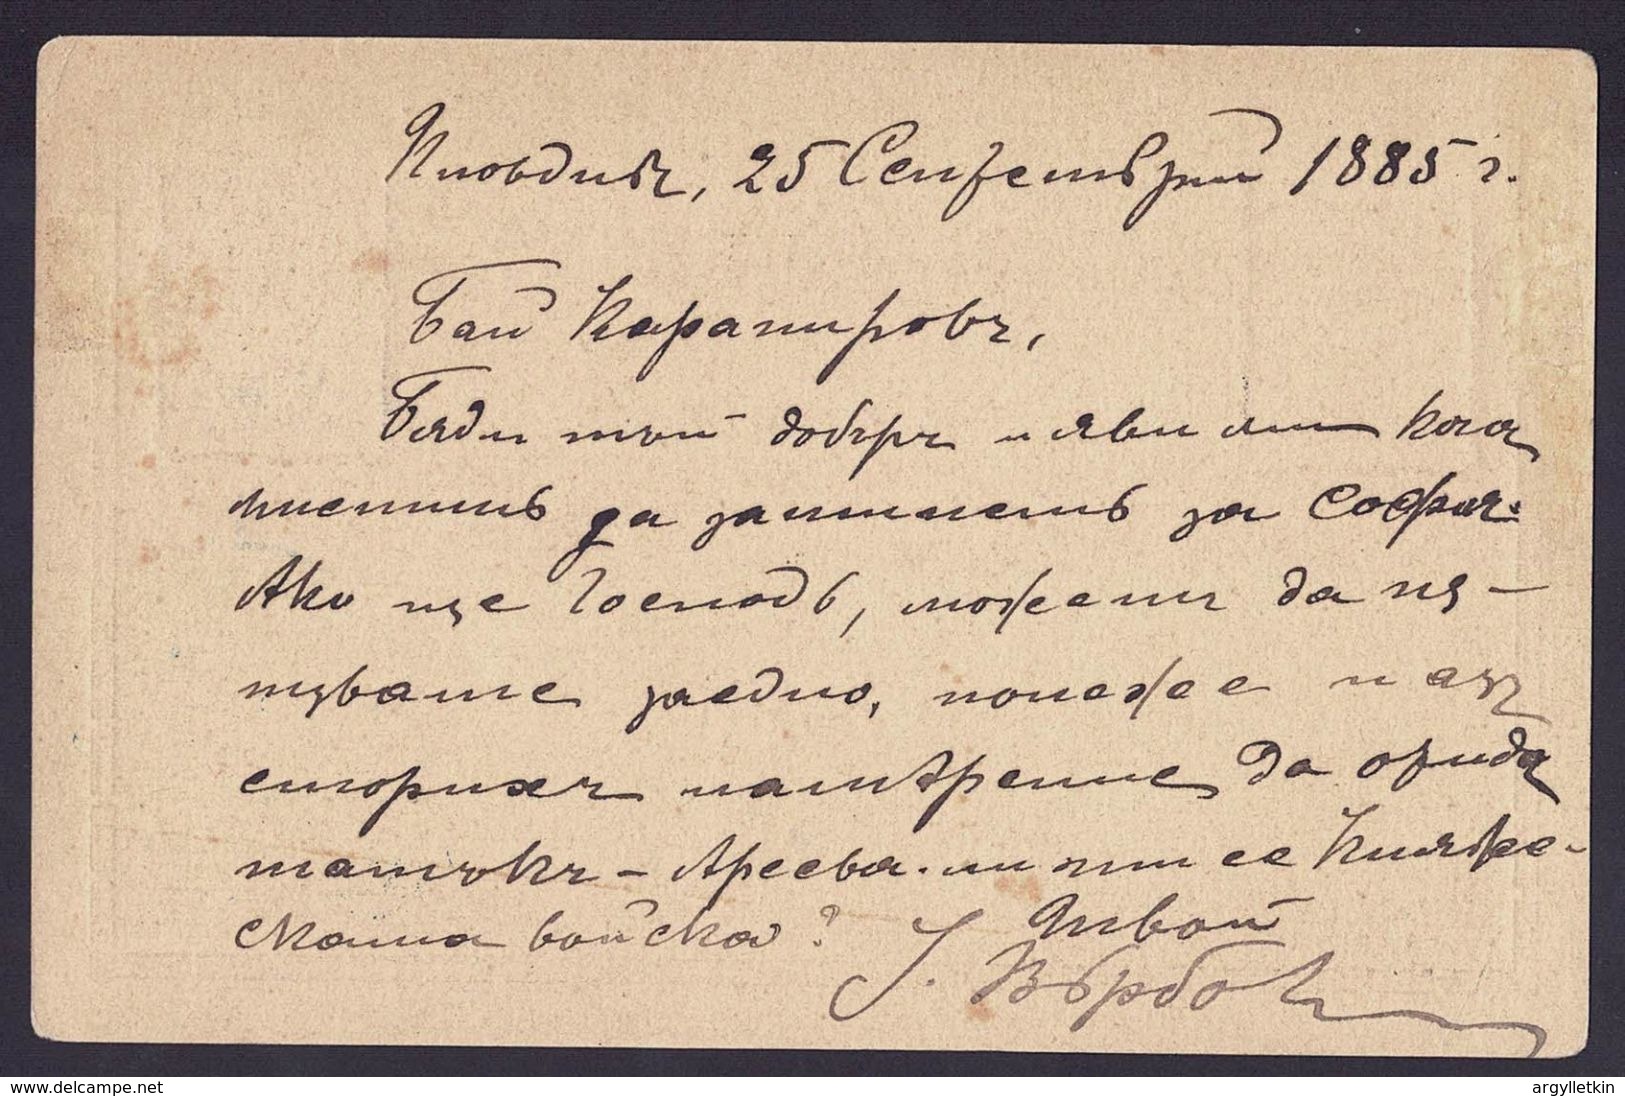 Пловдивъ, 25 Септемврий 1885 г.
Бай Карапировъ,
Бѫди тъй добъръ и яви ми кога
мислишь да заминешь за София.
Ако ще Господь, можеми да пѫ-
туваме заедно, понеже и азъ
сторихъ намѣрение да отида
татъкъ – Аресва ли ти се Княже-
ската войска? Твой
Върбо
www.delcampe.net
argylletkin